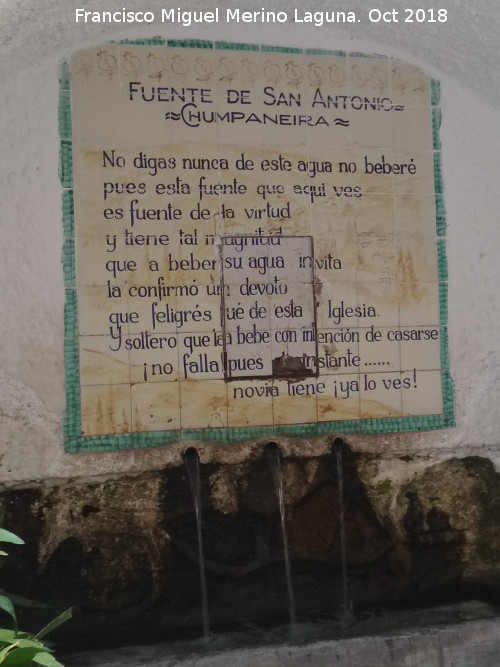 Francisco Miguel Merino Laguna. Oct 2018
FUENTE DE SAN ANTONIO=
≈CHUMPANEIRA≈
No digas nunca de este agua no beberé
pues esta fuente que aqui ves
es fuente de la virtud
y tiene tal magnitud
que a beber su agua invita
la confirmó un devoto
que feligrés fué de esta Iglesia.
Y soltero que la bebe con intención de casarse
¡no falla! pues instante......
novia tiene ¡ya lo ves!